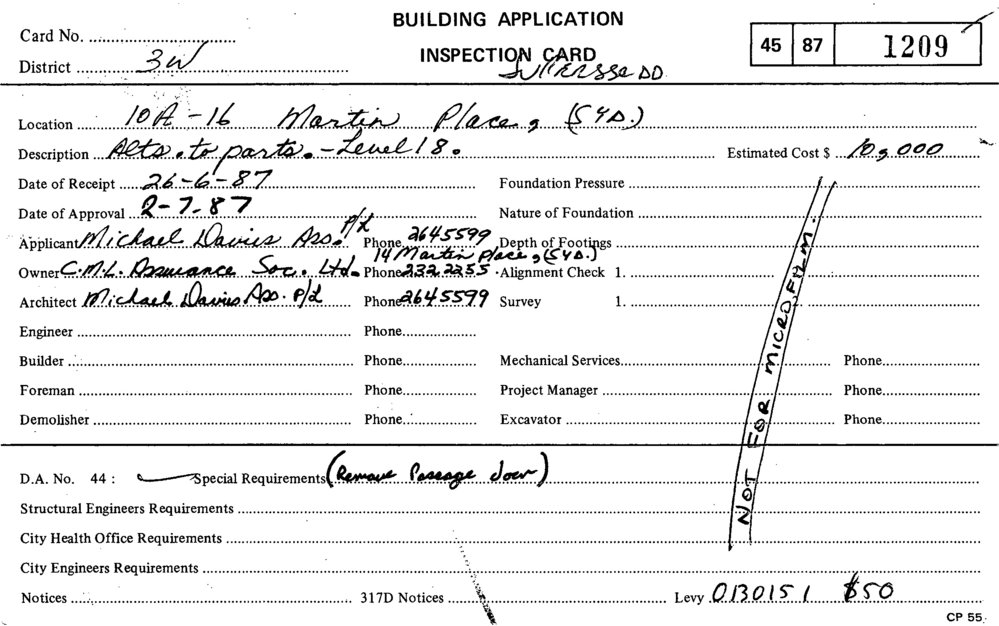 BUILDING APPLICATION
Card No.
INSPECTION CARD
45 87 1209
District 3W
SUPERSSEDD
Location 10A-16 Martin Place, (SYD.)
Description Alts. to parts. - Level 18. Estimated Cost $ 10,000
Date of Receipt 26-6-87 Foundation Pressure
Date of Approval 2-7-87 Nature of Foundation
Applicant Michael Davies Ass. P/L Phone 2645599 Depth of Footings
14 Martin Place, (SYD.)
Owner C.M.L. Assurance Soc. Ltd. Phone 232 2255 Alignment Check 1.
Architect Michael Davies Ass. P/L Phone 2645599 Survey 1.
Engineer Phone
Builder Phone Mechanical Services Phone
Foreman Phone Project Manager Phone
Demolisher Phone Excavator Phone
NOT FOR MICROFILM.
D.A. No. 44 : Special Requirements (Remove Passage door)
Structural Engineers Requirements
City Health Office Requirements
City Engineers Requirements
Notices 317D Notices Levy 0130151 $50
CP 55